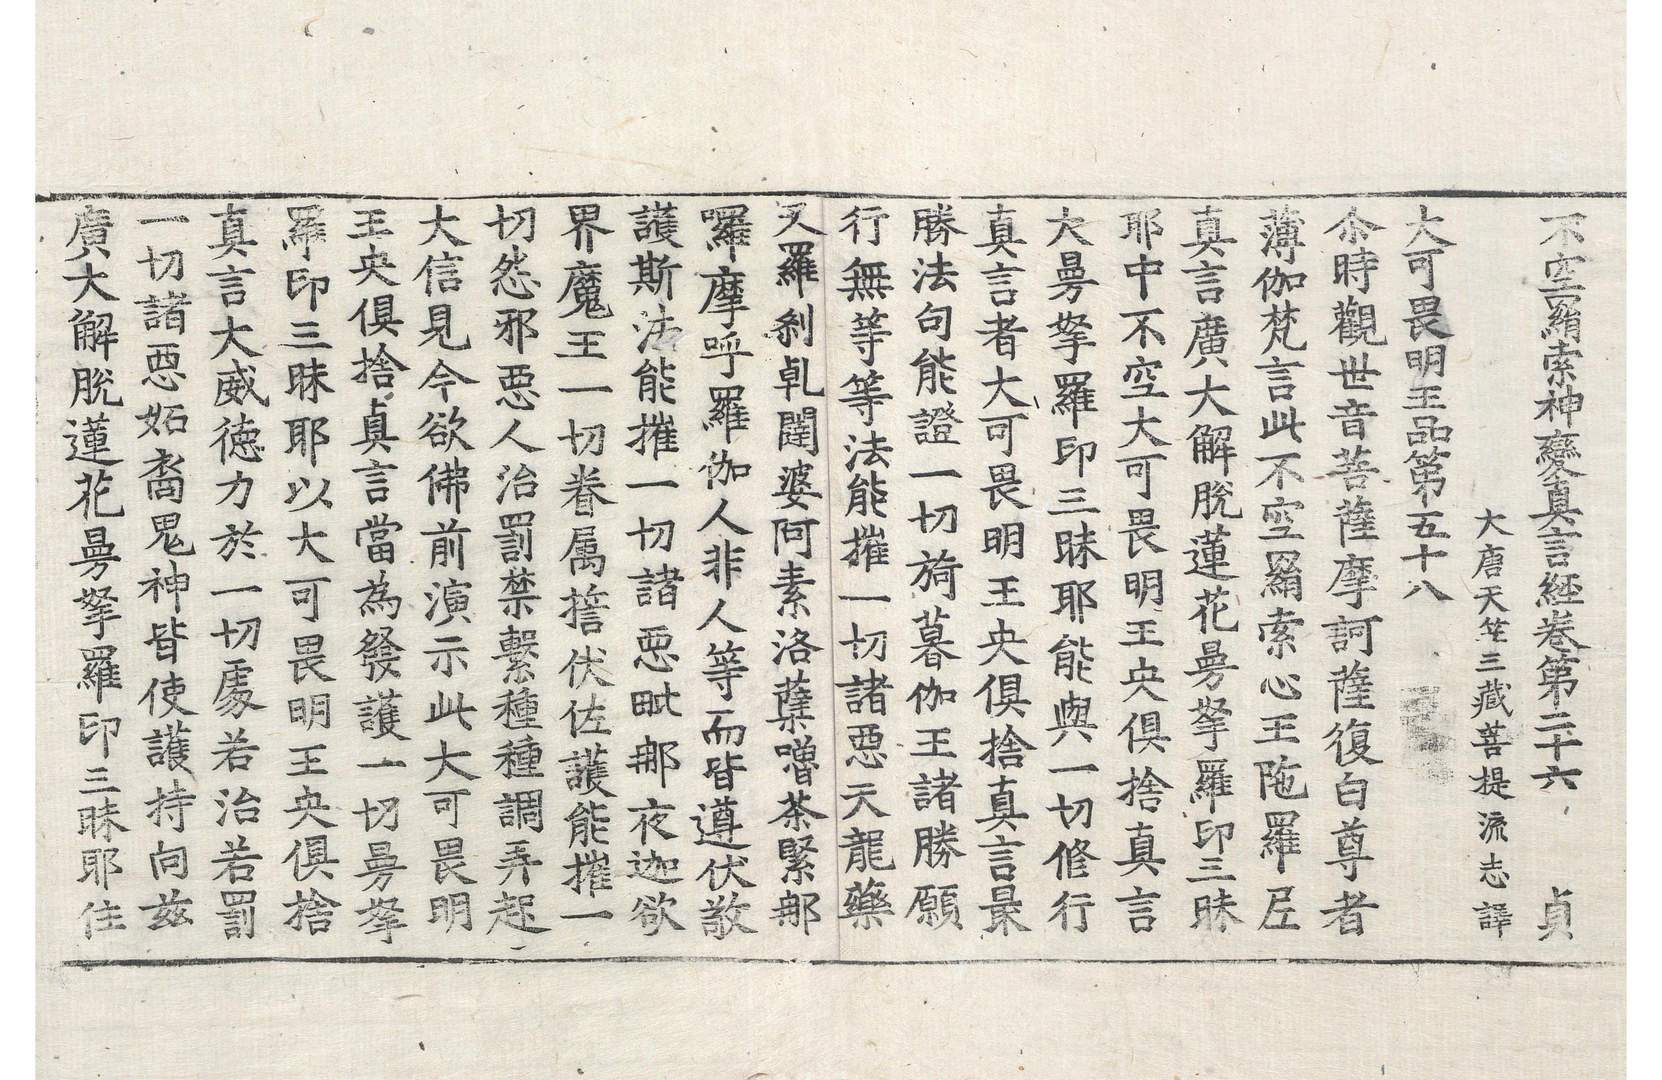 不空羂索神變真言經卷第二十六 貞
大唐天竺三藏菩提流志譯
大可畏明王品第五十八
尒時觀世音菩薩摩訶薩復白尊者
薄伽梵言此不空羂索心王陁羅尼
真言廣大解脫蓮花曼拏羅印三昧
耶中不空大可畏明王央俱捨真言
大曼拏羅印三昧耶能與一切修行
真言者大可畏明王央俱捨真言最
勝法句能證一切旖暮伽王諸勝願
行無等等等法能摧一切諸惡天龍藥
叉羅剎乹闥婆阿素洛蘖嚕茶緊那
囉摩呼羅伽人非人等而皆遵伏敬
護斯法能摧一切諸惡毗那夜迦欲
界魔王一切眷属誓伏佐護能摧一
切怨邪惡人治罰禁繫種種調弄起
大信見今欲佛前演示此大可畏明
王央俱捨真言當為發護一切曼拏
羅印三昧耶以大可畏明王央俱捨
真言大威德力於一切處若治若罰
一切諸惡妬裔鬼神皆使護持向茲
廣大解脫蓮花曼拏羅印三昧耶住